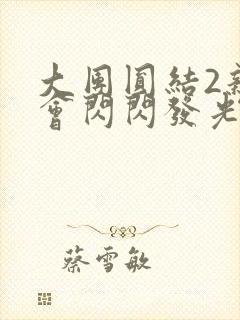 大團圓結2
會閃閃發光
蔡雪敏